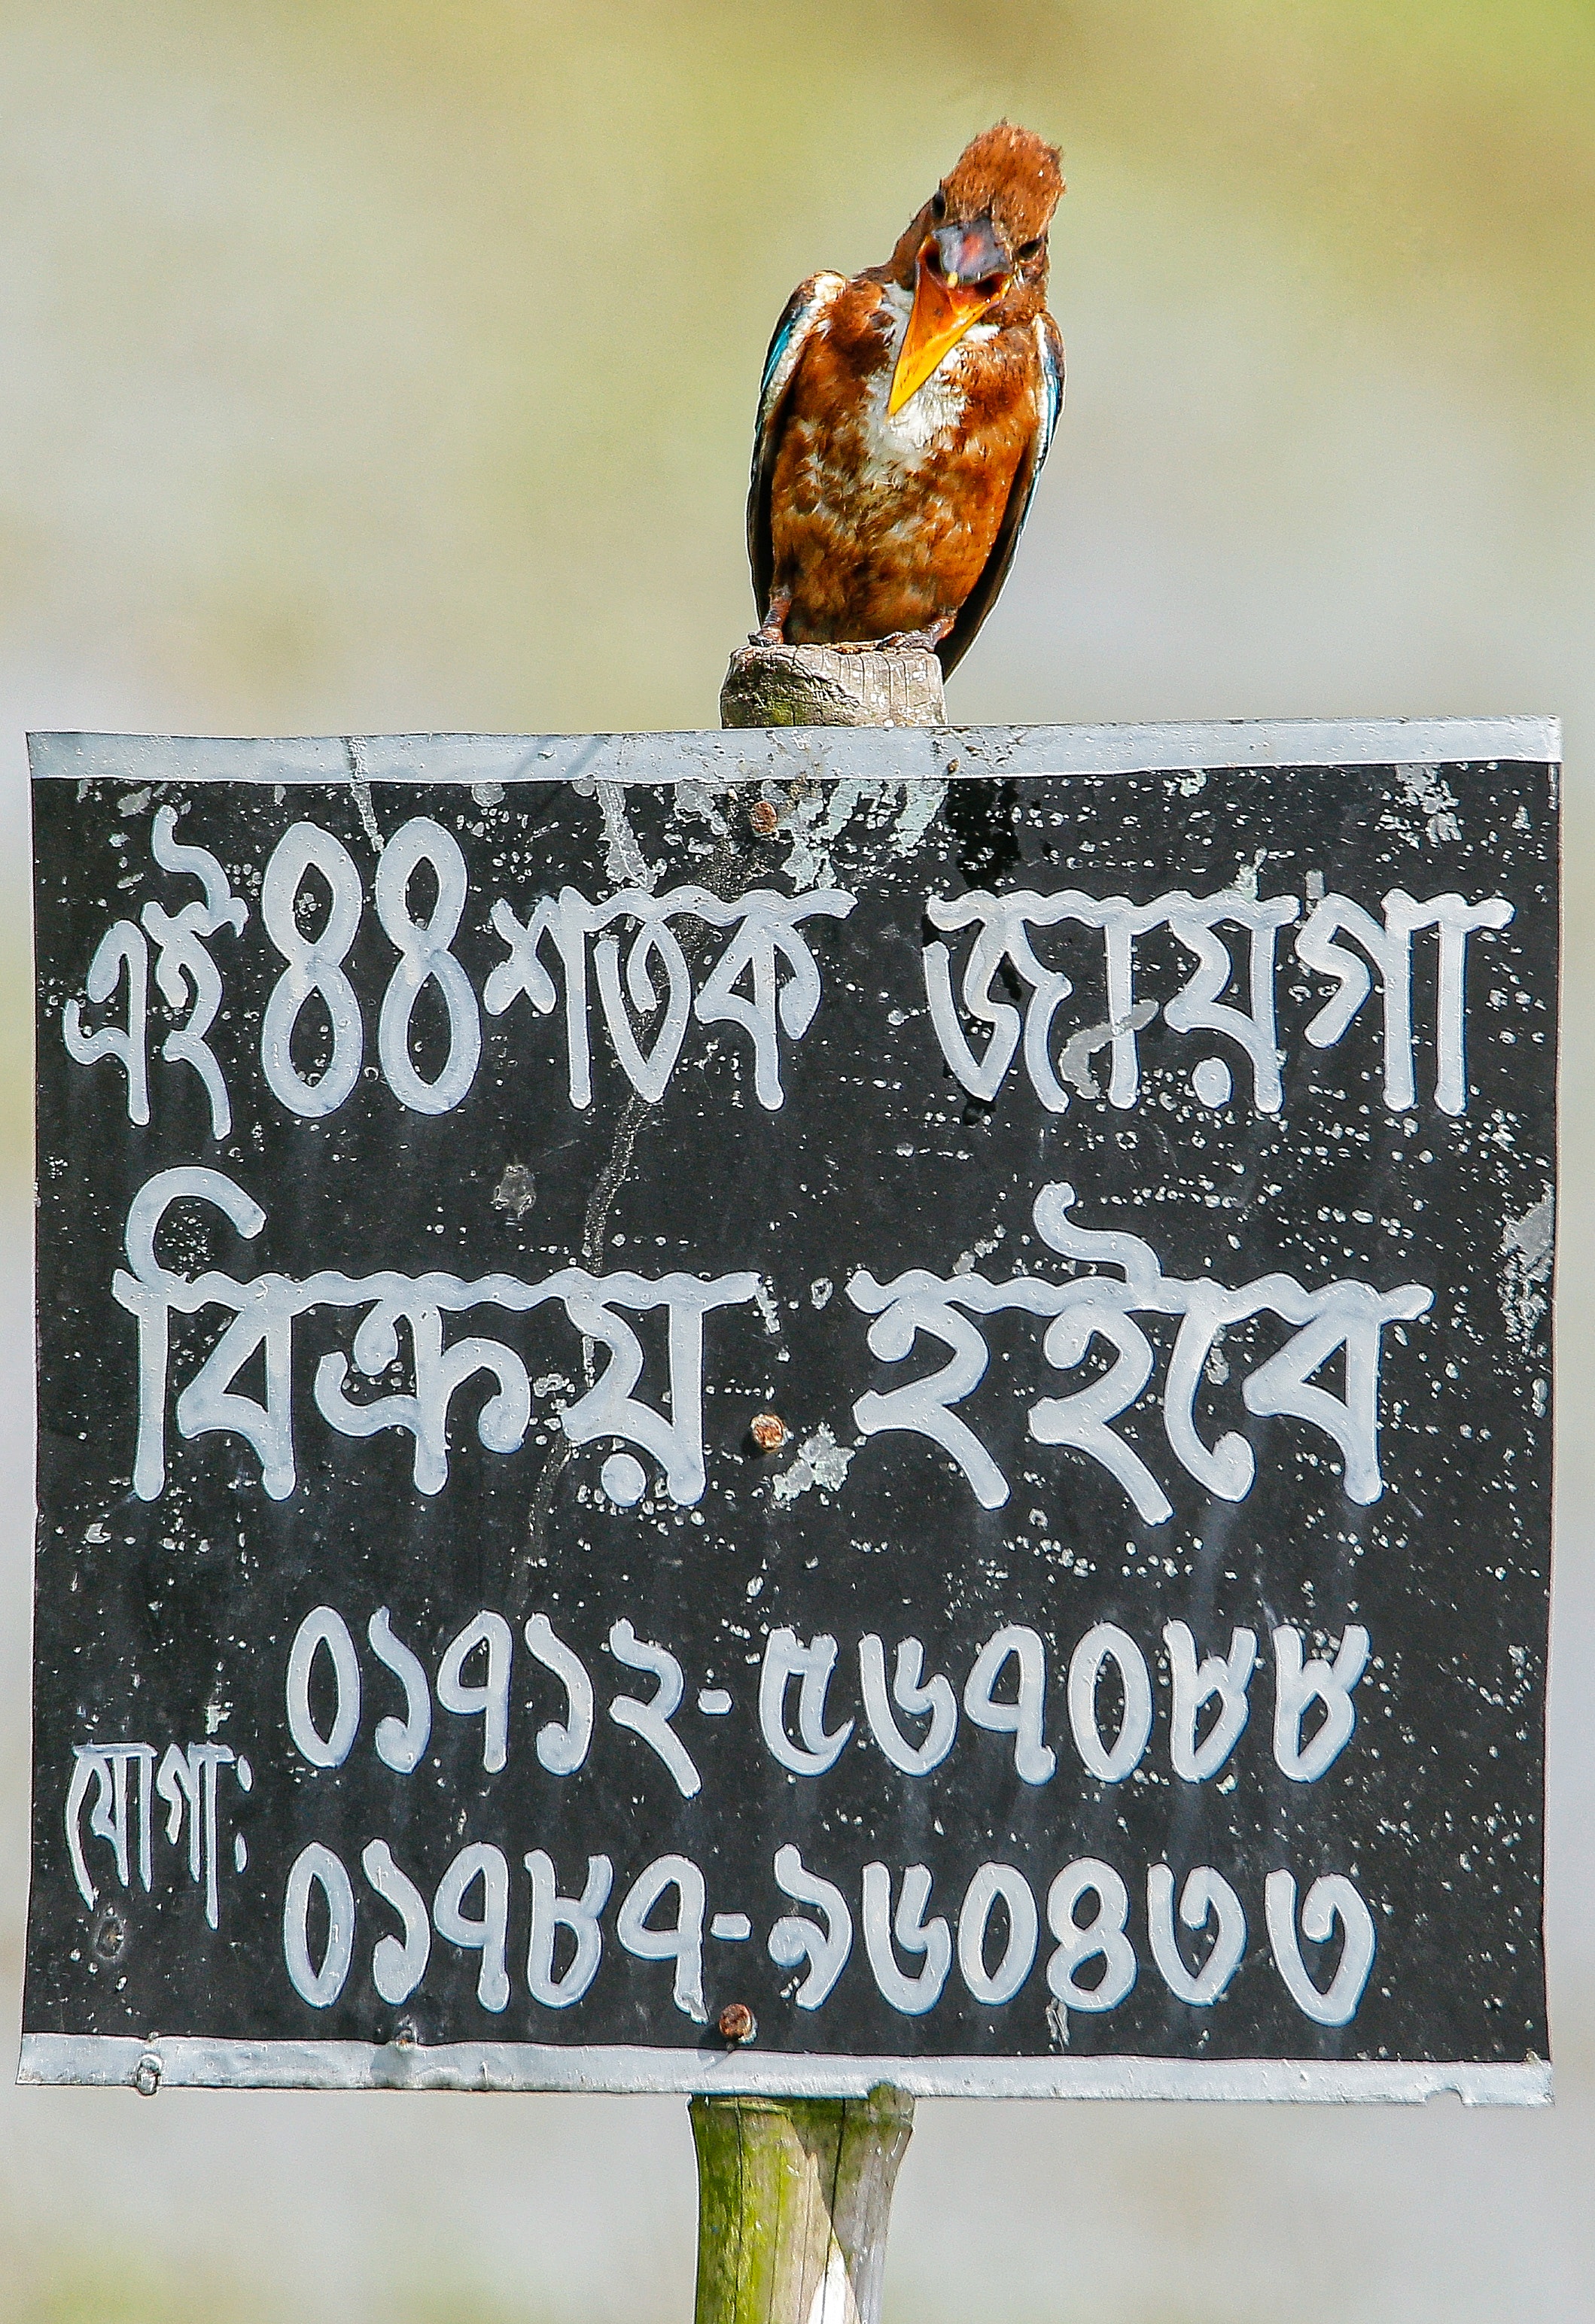 এই ৪৪ শতক জায়গা
বিক্রয় হইবে
যোগা:
০১৭১২-৫৬৭০৮৮
০১৭৮৭-৯৬০৪৩৩